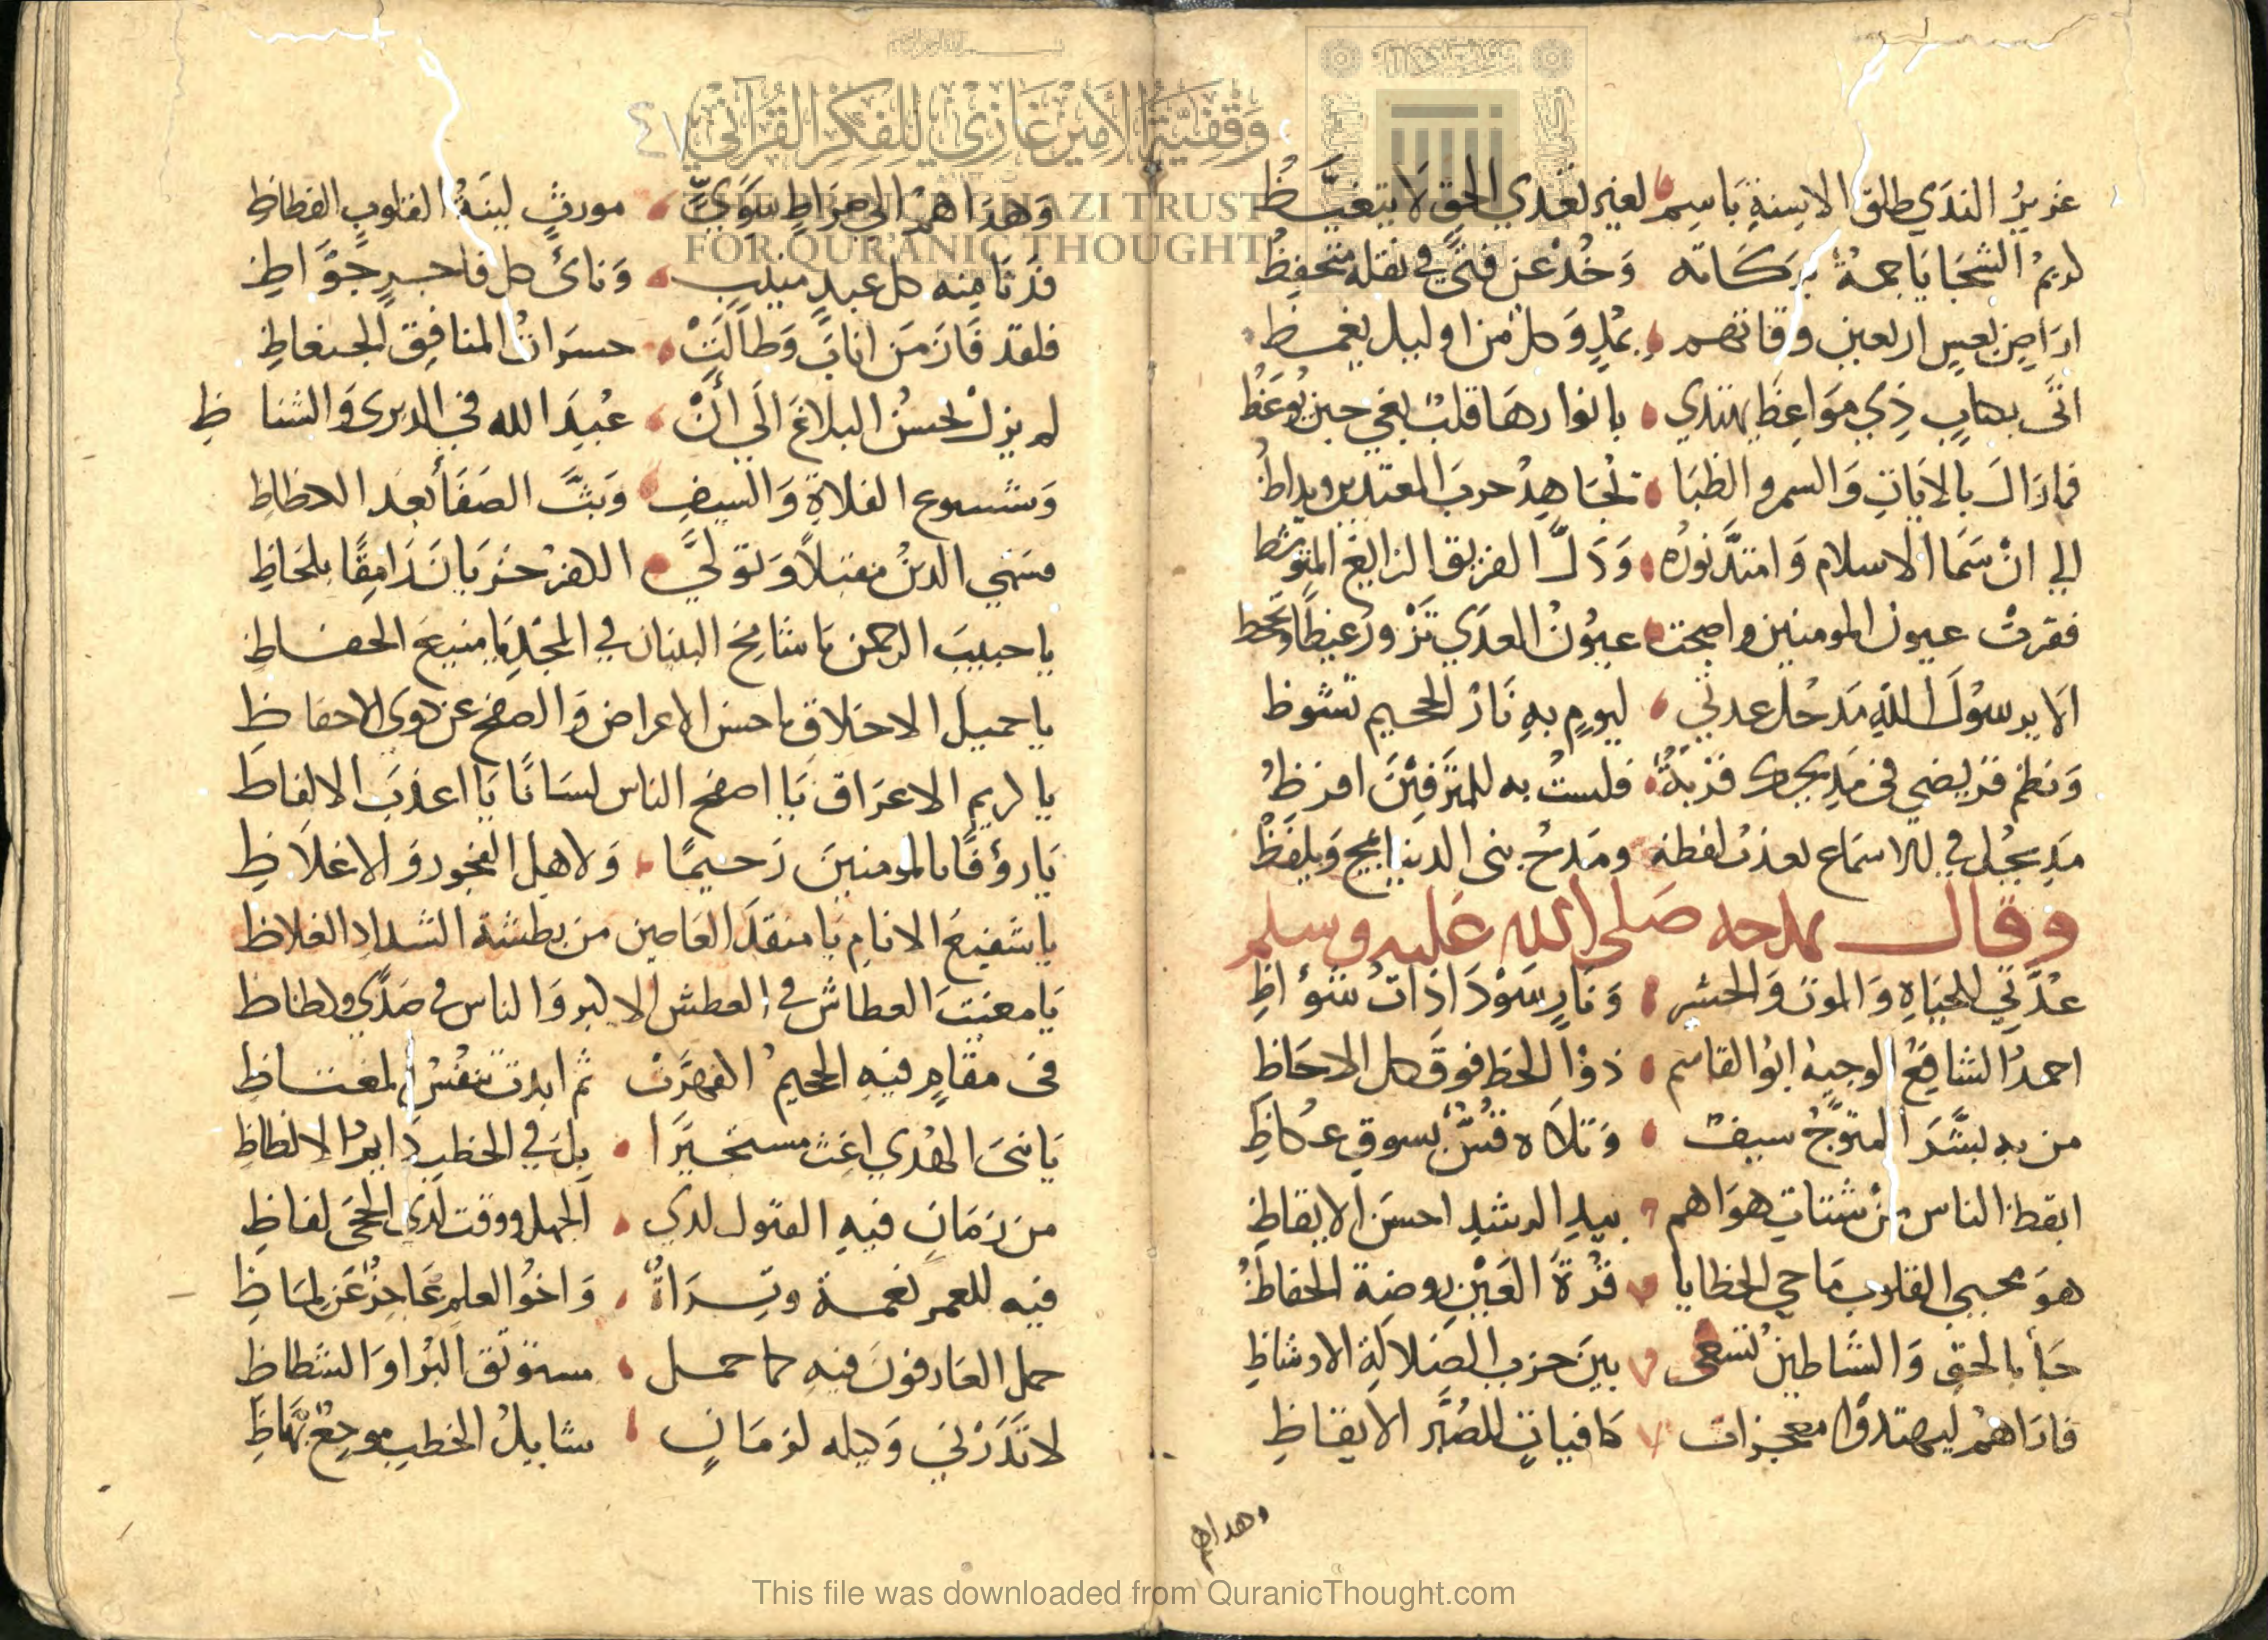 غزير الندى طلق الاسنة باسم لغير تعدي الحق لا يتغيظ
كريم السجايا جمة بركاته وخذ عن فتى في نقله متحفظ
اتى بكتاب ذي مواعظ يهتدي بانوارها قلب يعي حين يوعظ
فما زال بالايات والسمر والظبا يجاهد حرب المعتدين ويداظ
الى ان سما الاسلام وامتد نوره وذل الفريق الزايغ
فقرت عيون المومنين واصبحت عيون العدى تزور غيظا وتجحظ
الا برسول الله مدخل عدتي ليوم به نار الجحيم تشوظ
ونظم قريضي في مديحي قربة فلست به للمترفين اقرظ
مديح في الاسماع يعذب لفظه ومدح بني الدنيا يمج ويلفظ
وقال يمدحه صلى الله عليه وسلم
عدتي للحياة والموت والحشر ونار سودا ذات شواظ
احمد الشافع الوجيه ابو القاسم ذو الحظ فوق كل الاحاظ
من به بشر المتوج سيف وتلاه قس بسوق عكاظ
ايقظ الناس من شتات هواهم بيد الرشد احسن الايقاظ
هو محيي القلوب ماحي الخطايا قرة العين روضة الحفاظ
جا بالحق والشاطين تسعى بين حزب الضلالة الاوشاظ
فاراهم ليهتدوا معجزات كافيات للصبر الايقاظ
وهداهم
٤٧
وهداهم الى صراط سوي مورث لينة القلوب الفظاظ
فدنا منه كل عبد منيب وناى كل فاجر جواظ
فلقد فاز من اناب وطالت حسرات المنافق الجنعاظ
لم يزل يحسن البلاغ الى ان عبد الله في الذرى والشناظ
وشسوع الفلاة والسيف وبث الصفا بعد الدلظاظ
يا حبيب الرحمن يا شامخ البنيان في المجد يا منيع الحفاظ
يا جميل الاخلاق يا حسن الاعراض والصفح عن ذوي الاحفاظ
يا كريم الاعراق يا افصح الناس لسانا يا اعذب الالفاظ
يا رؤفا بالمومنين رحيما ولاهل الفجور ذو الاغلاظ
يا شفيع الانام يا منقذ العاصين من بطشة الشداد الغلاظ
يا مغيث العطاش في العطش الاكبر والناس في صدى ولظاظ
في مقام فيه الجحيم اكفهرت ثم ابدت تنفس المغتاظ
يا نبي الهدى اغث مستجيرا بك في الخطب دايم الالظاظ
من زمان فيه القبول لدى الجهل ووقت لذي الحجى لفاظ
فيه للغمر نعمة وثراة واخو العلم عاجز عن لماظ
حمل العارفون فيه كما حمل مستوثق البرا والشظاظ
لا تذرني وكيله لزمان شايك الخطب موجع بهاظ
وقفية الأمير غازي للفكر القرآني
THE PRINCE GHAZI TRUST
FOR QUR'ANIC THOUGHT
This file was downloaded from QuranicThought.com